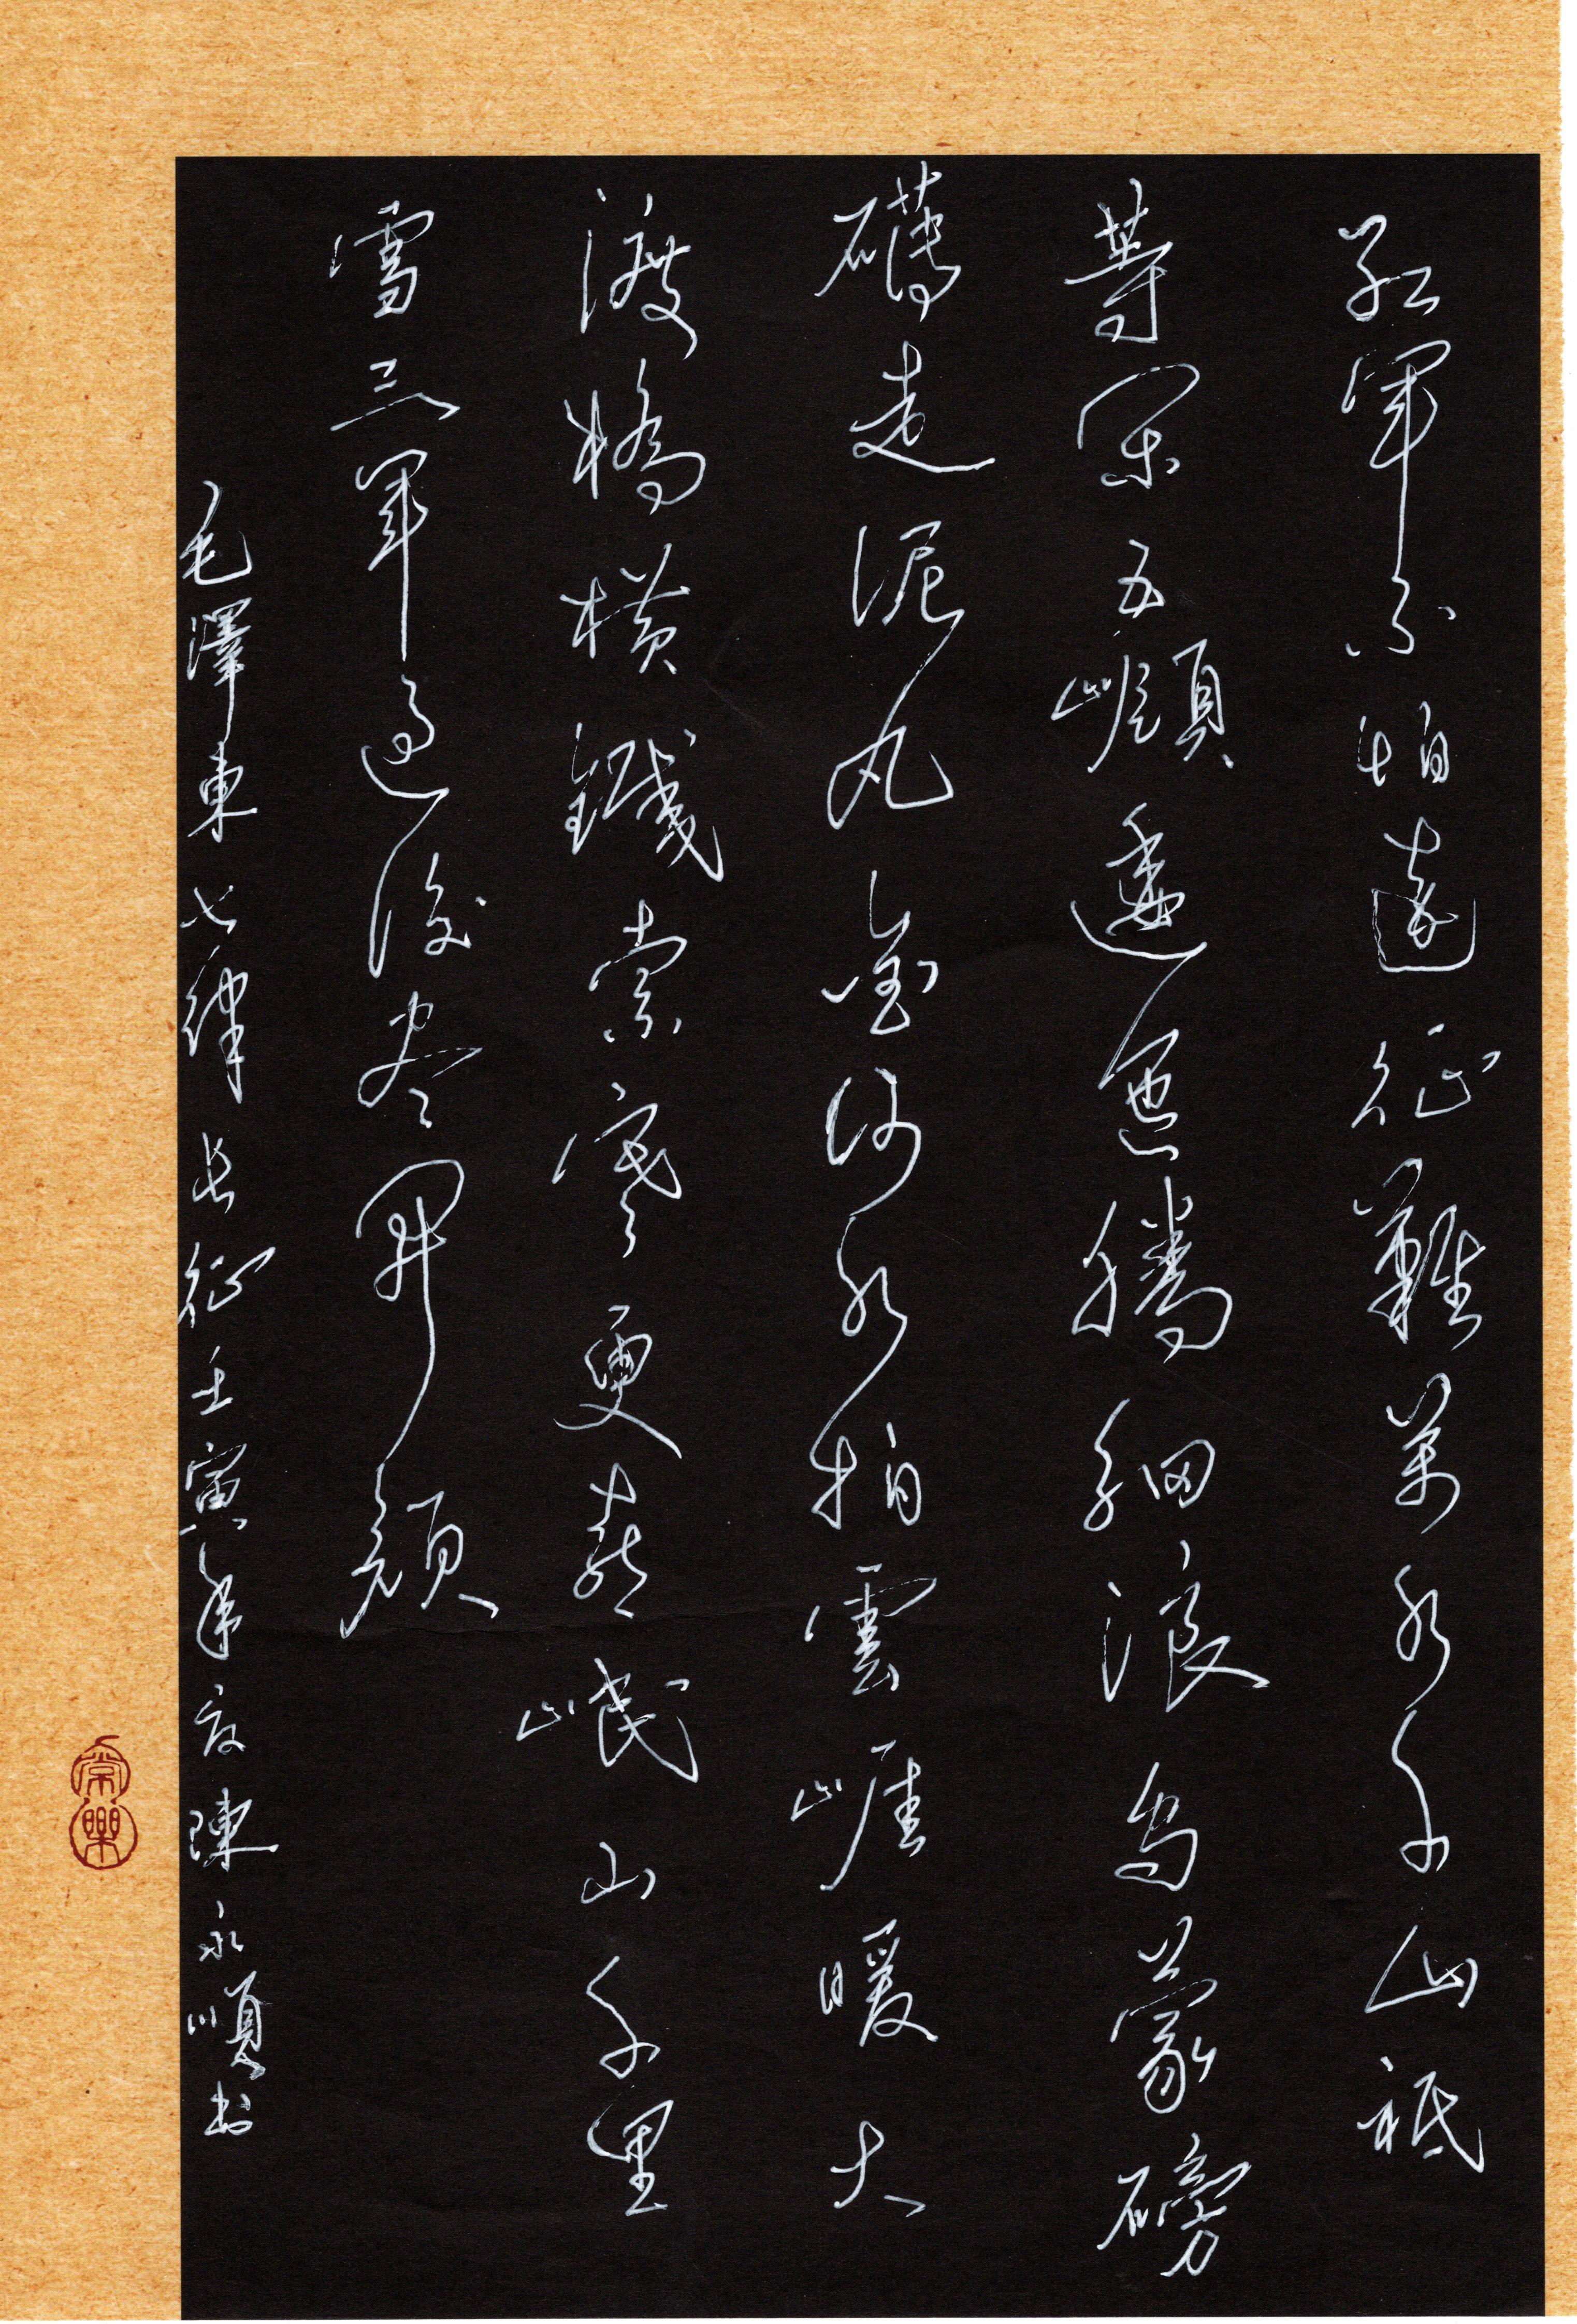 紅軍不怕遠征難萬水千山祗
等閑五嶺逶迤騰細浪烏蒙磅
礴走泥丸金沙水拍雲崖暖大
渡橋橫鐵索寒更喜岷山千里
雪三軍過後盡開顏
毛澤東七律長征壬寅年夏陳永順书
常樂